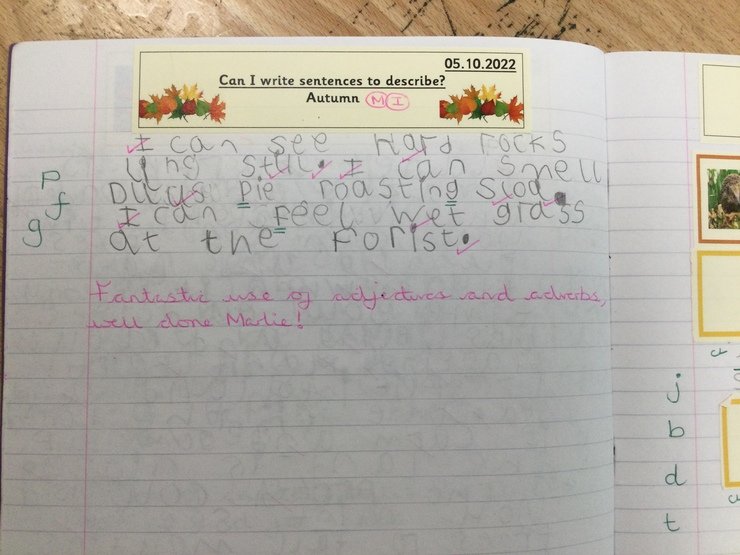 05.10.2022
Can I write sentences to describe?
Autumn M I
I can see Hard rocks
lying still. I can smell
pie roasting
I can Feel wet grass
at the Forist.
p
f
g
Fantastic use of adjectives and adverbs,
well done Marlie!
j
b
d
t